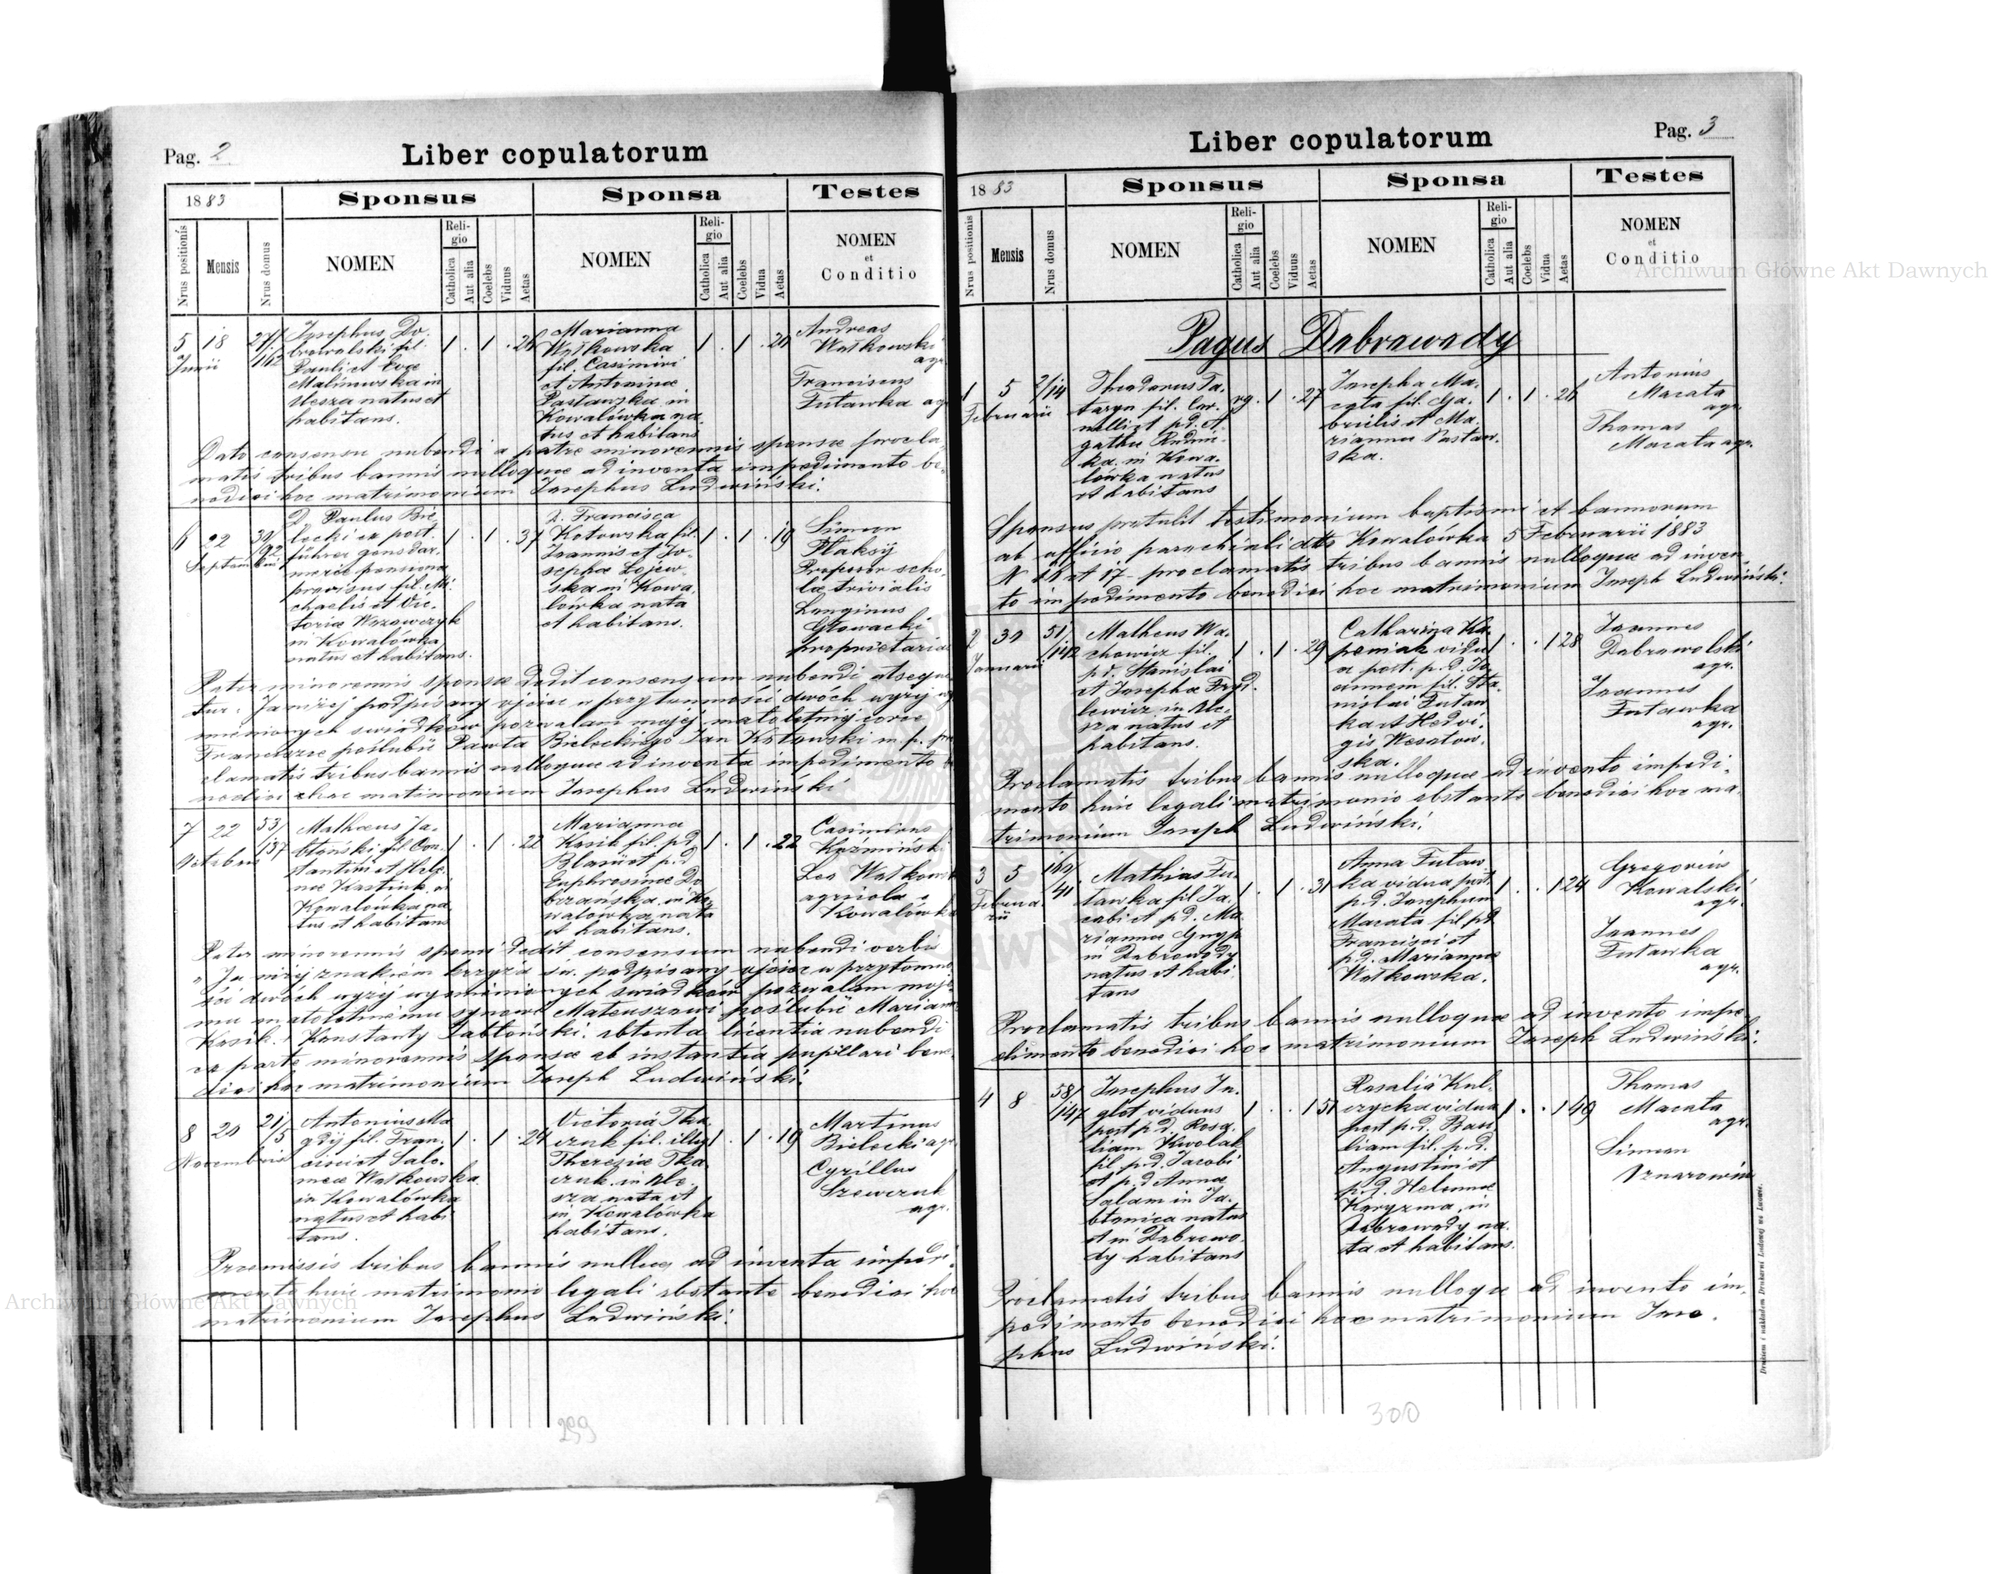 Pag. 2
Liber copulatorum
1883
Sponsus
Sponsa
Testes
Nrus positionis
Mensis
Nrus domus
NOMEN
Religio
Catholica
Aut alia
Coelebs
Viduus
Aetas
NOMEN
Religio
Catholica
Aut alia
Coelebs
Vidua
Aetas
NOMEN
et
Conditio
5 18
Junii
Josephus Do
browolski fil.
Pauli et Evae
Malinowska in
natus et
habitans.
1 . 1 .
Marianna
Wałkowska
fil. Casimiri
et Antoninae
Kowalówka na
tus et habitans
1 . 1 . 20
Andreas
Wałkowski
agr.
Franciscus
Futawka agr
Dato consensu nubendi a patre minorennis sponsae procla
matis tribus bannis nulloque adinvento impedimento be
nedixi hoc matrimonium Josephus Ludwiński.
6 22
Septembris
30/92
Paulus Bie
lecki ex post.
führer gensdar
merie
fil. Mi
chaelis et Vic
toriae
in Kowalówka
natus et habitans.
1 . 1 . 37
Francisca
Kotowska fil.
Joannis et Jo
sepha Łojew
ska in Kowa
lówka nata
et habitans.
1 . 1 . 19
Simeon
Professor scho
la trivialis
Longinus
Głowacki
proprietarius
Pater minorennis sponsae dedit consensum nubendi
podpisany ojciec w przytomności dwóch wyżej wy
mienionych świadków pozwalam mojej małoletniej córce
Franciszce poślubić Pawła Bieleckiego Jan Kotowski m. p. pro
clamatis tribus bannis nulloque adinvento impedimento be
nedixi hoc matrimonium Josephus Ludwiński
7 22
Octobris
53/137
Mathaeus Ja
błoński fil Con
stantini et Hele
nae
Kowalówka na
tus et habitans
1 . 1 . 22
Marianna
Kosik fil. p.d.
Blasii et p.d.
Euphrosinae Do
brzańska in Ko
walówka nata
et habitans.
1 . 1 . 22
Casimirus
Koźmiński
Leo Wałkowski
agricola
Kowalówka
Pater minorennis sponsi dedit consensum nubendi verbis
„Ja niżej znakiem krzyża św. podpisany ojciec w przytomno
ści dwóch wyżej wymienionych świadków pozwalam moje
mu małoletniemu synowi Mateuszowi poślubić Mariannę
Kosik. Konstanty Jabłoński. obtenta licentia nubendi
ex parte minorennis sponsae ab instantia pupillari bene
dixi hoc matrimonium Joseph Ludwiński.
8 20
Novembris
21/5
Antonius Ma
fil. Fran
cisci et Salo
meae Wałkowska
in Kowalówka
natus et habi
tans.
1 . 1 . 24
Victoria Tka
czuk fil. illeg
Theresiae Tka
czuk in
nata et
in Kowalówka
habitans.
1 . 1 . 19
Martinus
Bielecki agr
Cyrillus
Szewczuk
agr.
Praemissis tribus bannis nulloque adinvento impedi
mento huic matrimonio legali obstante benedixi hoc
matrimonium Josephus Ludwiński.
299
Pag. 3
Liber copulatorum
1883
Sponsus
Sponsa
Testes
Nrus positionis
Mensis
Nrus domus
NOMEN
Religio
Catholica
Aut alia
Coelebs
Viduus
Aetas
NOMEN
Religio
Catholica
Aut alia
Coelebs
Vidua
Aetas
NOMEN
et
Conditio
Pagus Dobrowody
1 5
Februarii
2/14
Theodorus Ta
taryn fil. Cor
nelli et p.d. A
gatha Rudnic
ka in Kowa
lówka natus
et habitans
rg. 1 . 27
Josepha Ma
cata fil. Ga
brielis et Ma
riannae
ska.
1 . 1 . 26
Antonius
Macata
agr.
Thomas
Macata agr.
Sponsus protulit testimonium baptismi et bannorum
ab officio parochiali dtto Kowalówka 5 Februarii 1883
N 16 et 17 proclamatis tribus bannis nulloque adinven
to impedimento benedixi hoc matrimonium Joseph Ludwiński.
2 30
Januarii
51/142
Matheus Wa
chowicz fil.
p.d. Stanislai
et Josepha Fryd
lewicz in
natus et
habitans.
1 . 1 . 29
Catharina
vidu
a post p.d. Jo
annem fil. Sta
nislai Futaw
ka et Hedvi
gis
ska.
1 . . 1 28
Joannes
Dobrowolski
agr.
Joannes
Futawka
agr.
Proclamatis tribus bannis nulloque adinvento impedi
mento huic legali matrimonio obstante benedixi hoc ma
trimonium Joseph Ludwiński.
3 5
Februa
rii
Mathias Fu
tawka fil Ja
cobi et p.d. Ma
riannae
in Dobrowody
natus et habi
tans
1 . 1 . 31
Anna Futaw
ka vidua post
p.d. Josephum
Macata fil p.d
Francisci et
p.d. Marianna
Wałkowska.
1 . . 1 24
Gregorius
Kowalski
agr.
Joannes
Futawka
agr.
Proclamatis tribus bannis nulloque adinvento impe
dimento benedixi hoc matrimonium Joseph Ludwiński.
4 8
58/147
Josephus Ja
głot viduus
post p.d. Rosa
liam
fil. p.d. Jacobi
et p.d Anna
Salam in Ja
błonica natus
et in Dobrowo
dy habitans
1 . . 1 51
Rosalia Kul
czycka vidua
post p.d. Basi
lium fil. p.d.
Augustini et
p.d. Helenae
in
Dobrowody na
ta et habitans.
1 . . 1 49
Thomas
Macata
agr.
Simeon
Proclamatis tribus bannis nulloque adinvento im
pedimento benedixi hoc matrimonium Jose
phus Ludwiński.
300
Drukiem i nakładem Drukarni Ludowej we Lwowie.
Archiwum Główne Akt Dawnych
Archiwum Główne Akt Dawnych